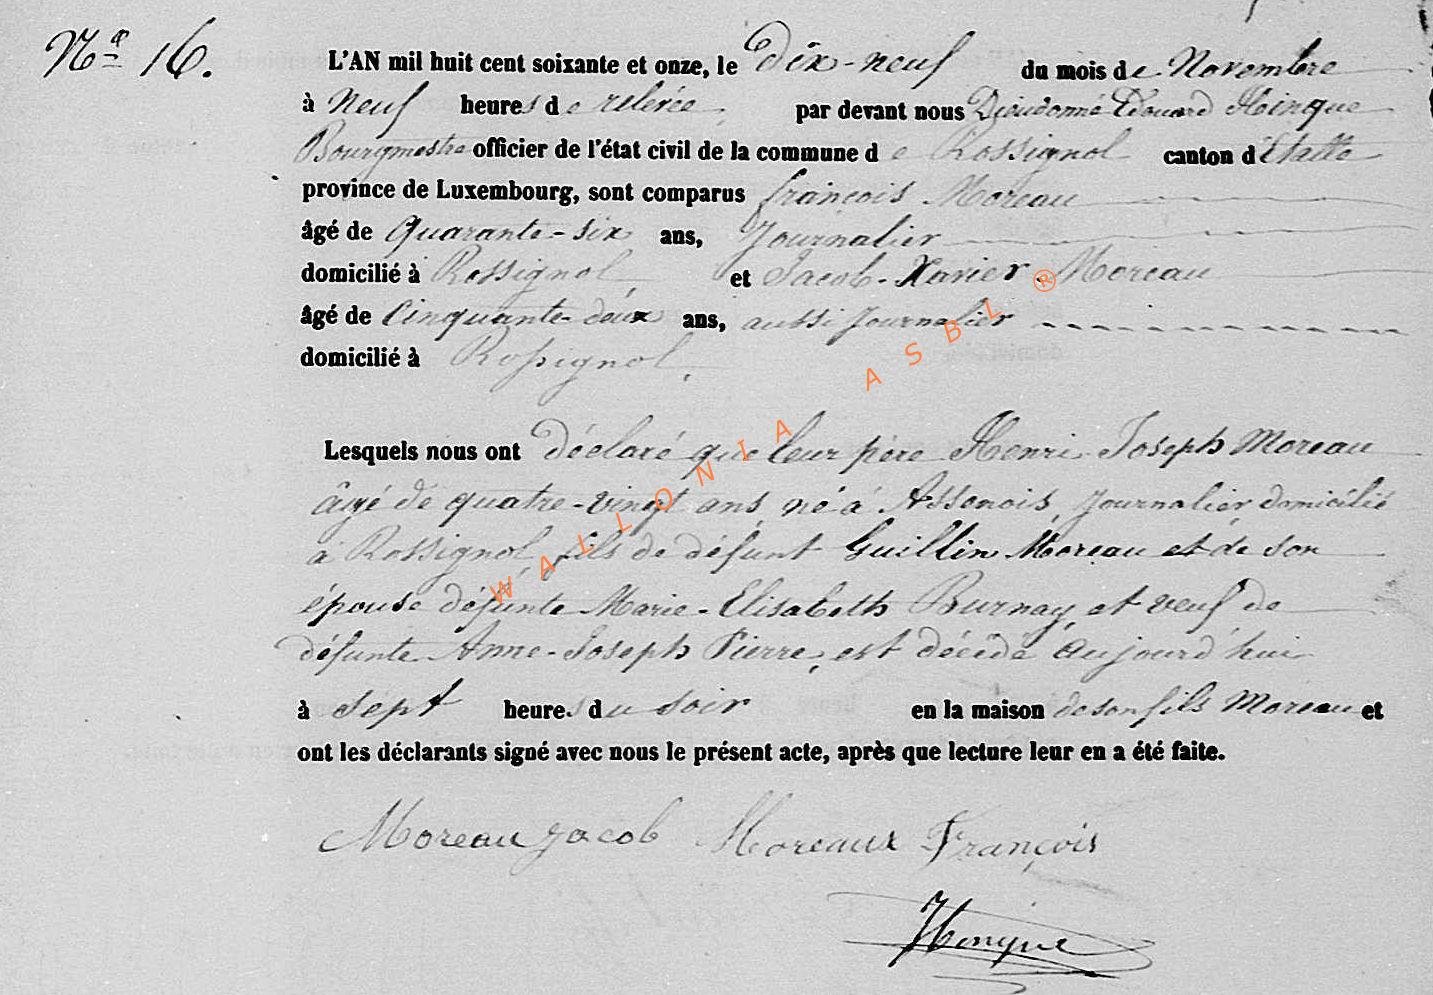 Nº 16.
L'AN mil huit cent soixante et onze, le Dix-neuf du mois de Novembre
à Neuf heures de relevée, par devant nous Dieudonné Edouard Hinque
Bourgmestre officier de l'état civil de la commune de Rossignol canton d'Etalle
province de Luxembourg, sont comparus françois Moreau
âgé de Quarante-six ans, Journalier
domicilié à Rossignol et Jacob-Xavier Moreau
âgé de Cinquante-deux ans, aussi Journalier
domicilié à Rossignol,
Lesquels nous ont Déclaré que leur père Henri Joseph Moreau
âgé de quatre-vingt ans, né à Assenois, Journalier domicilié
à Rossignol, fils de défunt Guillin Moreau et de son
épouse défunte Marie-Elisabeth Burnay, et veuf de
défunte Anne-Joseph Pierre, est décédé aujourd'hui
à sept heures du soir en la maison de son fils Moreau et
ont les déclarants signé avec nous le présent acte, après que lecture leur en a été faite.
Moreau Jacob Moreaux François
Hinque
WALLONIA ASBL ®